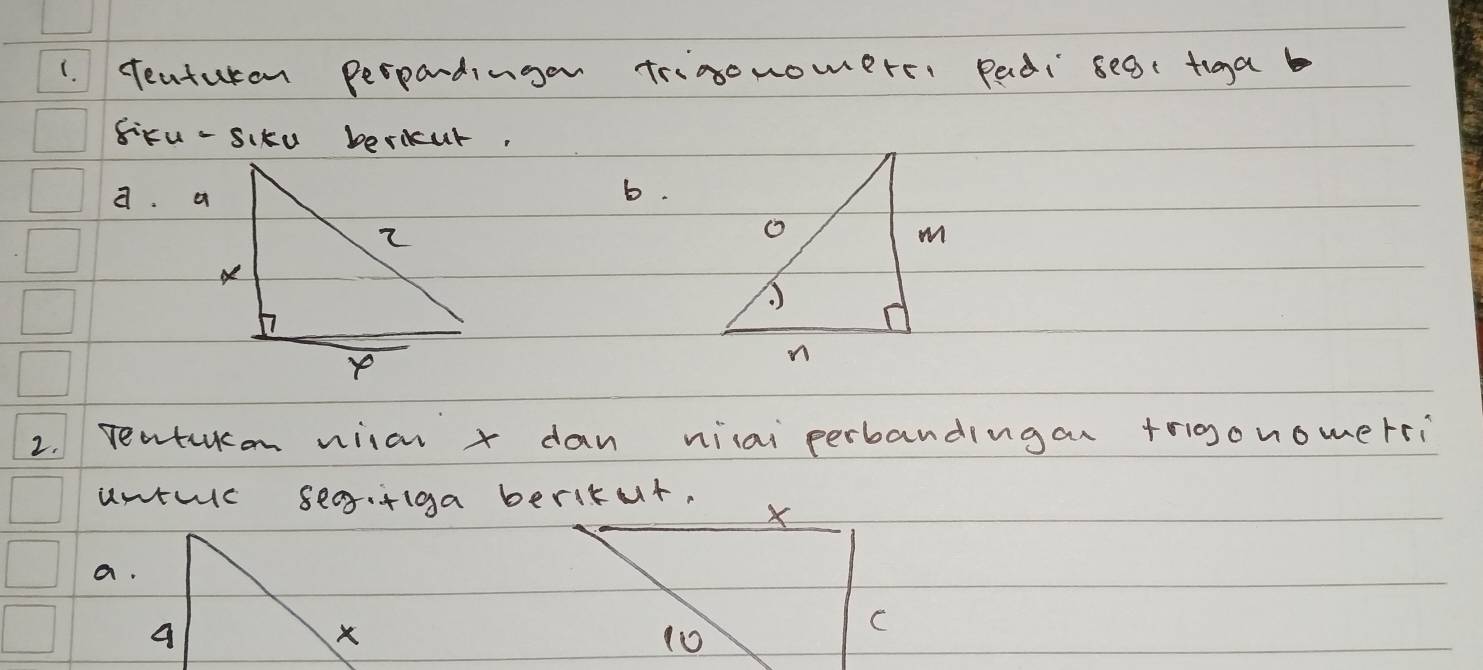 1. Tentukan perpandingan trigonometri padi segi tiga b
siku-siku berikut.
a. a b.
z o m
x
y n
2. Tentukan nilai x dan nilai perbandingan trigonometri
untuk segitiga berikut.
x
a.
4 x 10 C